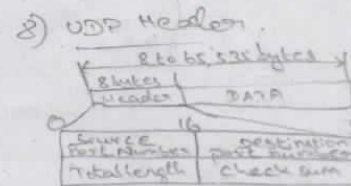 8) UDP Header
8 to 65,535 bytes
8 bytes
Header DATA
0 16
Source Destination
Port Number port number
Total length Check sum